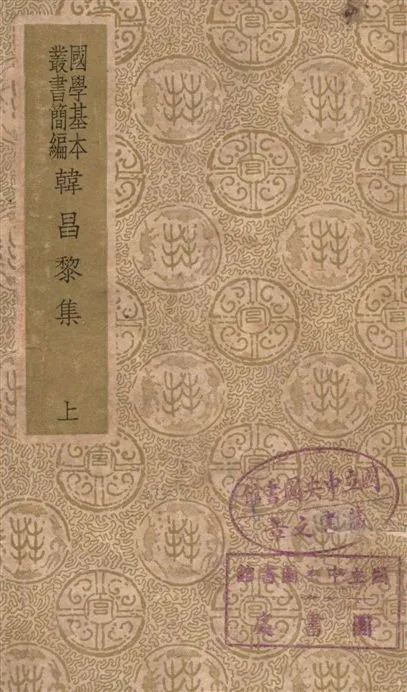 國學基本
叢書簡編
韓昌黎集
上
國立中央圖書館
藏書之章
國立中央圖書館
圖書